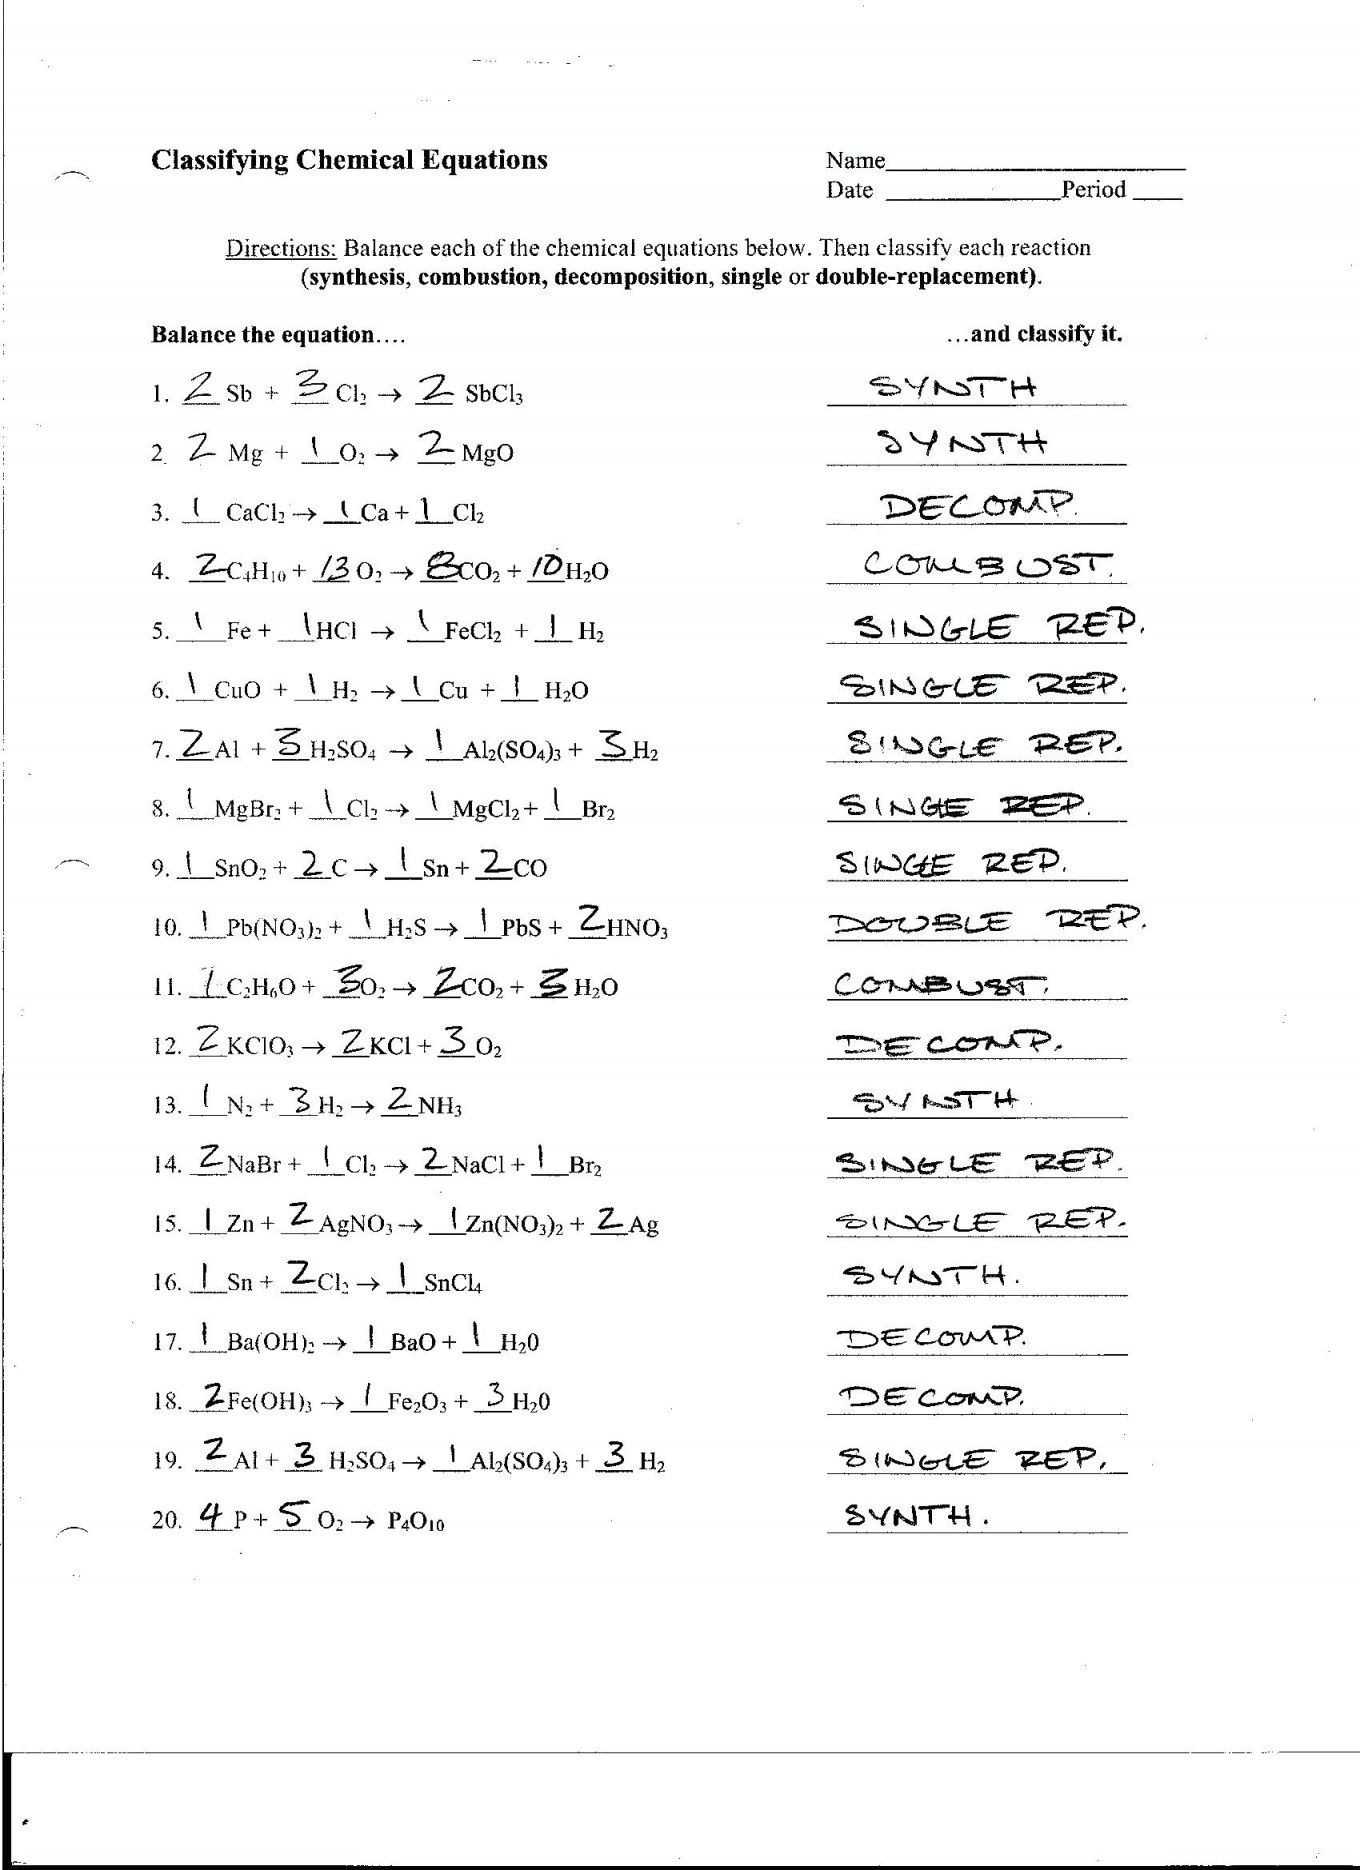 Classifying Chemical Equations Name
Date Period
Directions: Balance each of the chemical equations below. Then classify each reaction
(synthesis, combustion, decomposition, single or double-replacement).
Balance the equation.... ...and classify it.
1. 2 Sb + 3 Cl₂ → 2 SbCl₃ SYNTH
2. 2 Mg + 1 O₂ → 2 MgO SYNTH
3. 1 CaCl₂ → 1 Ca + 1 Cl₂ DECOMP.
4. 2 C₄H₁₀ + 13 O₂ → 8 CO₂ + 10 H₂O COMBUST.
5. 1 Fe + 1 HCl → 1 FeCl₂ + 1 H₂ SINGLE REP.
6. 1 CuO + 1 H₂ → 1 Cu + 1 H₂O SINGLE REP.
7. 2 Al + 3 H₂SO₄ → 1 Al₂(SO₄)₃ + 3 H₂ SINGLE REP.
8. 1 MgBr₂ + 1 Cl₂ → 1 MgCl₂ + 1 Br₂ SINGLE REP.
9. 1 SnO₂ + 2 C → 1 Sn + 2 CO SINGLE REP.
10. 1 Pb(NO₃)₂ + 1 H₂S → 1 PbS + 2 HNO₃ DOUBLE REP.
11. 1 C₂H₆O + 3 O₂ → 2 CO₂ + 3 H₂O COMBUST.
12. 2 KClO₃ → 2 KCl + 3 O₂ DECOMP.
13. 1 N₂ + 3 H₂ → 2 NH₃ SYNTH
14. 2 NaBr + 1 Cl₂ → 2 NaCl + 1 Br₂ SINGLE REP.
15. 1 Zn + 2 AgNO₃ → 1 Zn(NO₃)₂ + 2 Ag SINGLE REP.
16. 1 Sn + 2 Cl₂ → 1 SnCl₄ SYNTH.
17. 1 Ba(OH)₂ → 1 BaO + 1 H₂0 DECOMP.
18. 2 Fe(OH)₃ → 1 Fe₂O₃ + 3 H₂0 DECOMP.
19. 2 Al + 3 H₂SO₄ → 1 Al₂(SO₄)₃ + 3 H₂ SINGLE REP.
20. 4 P + 5 O₂ → P₄O₁₀ SYNTH.